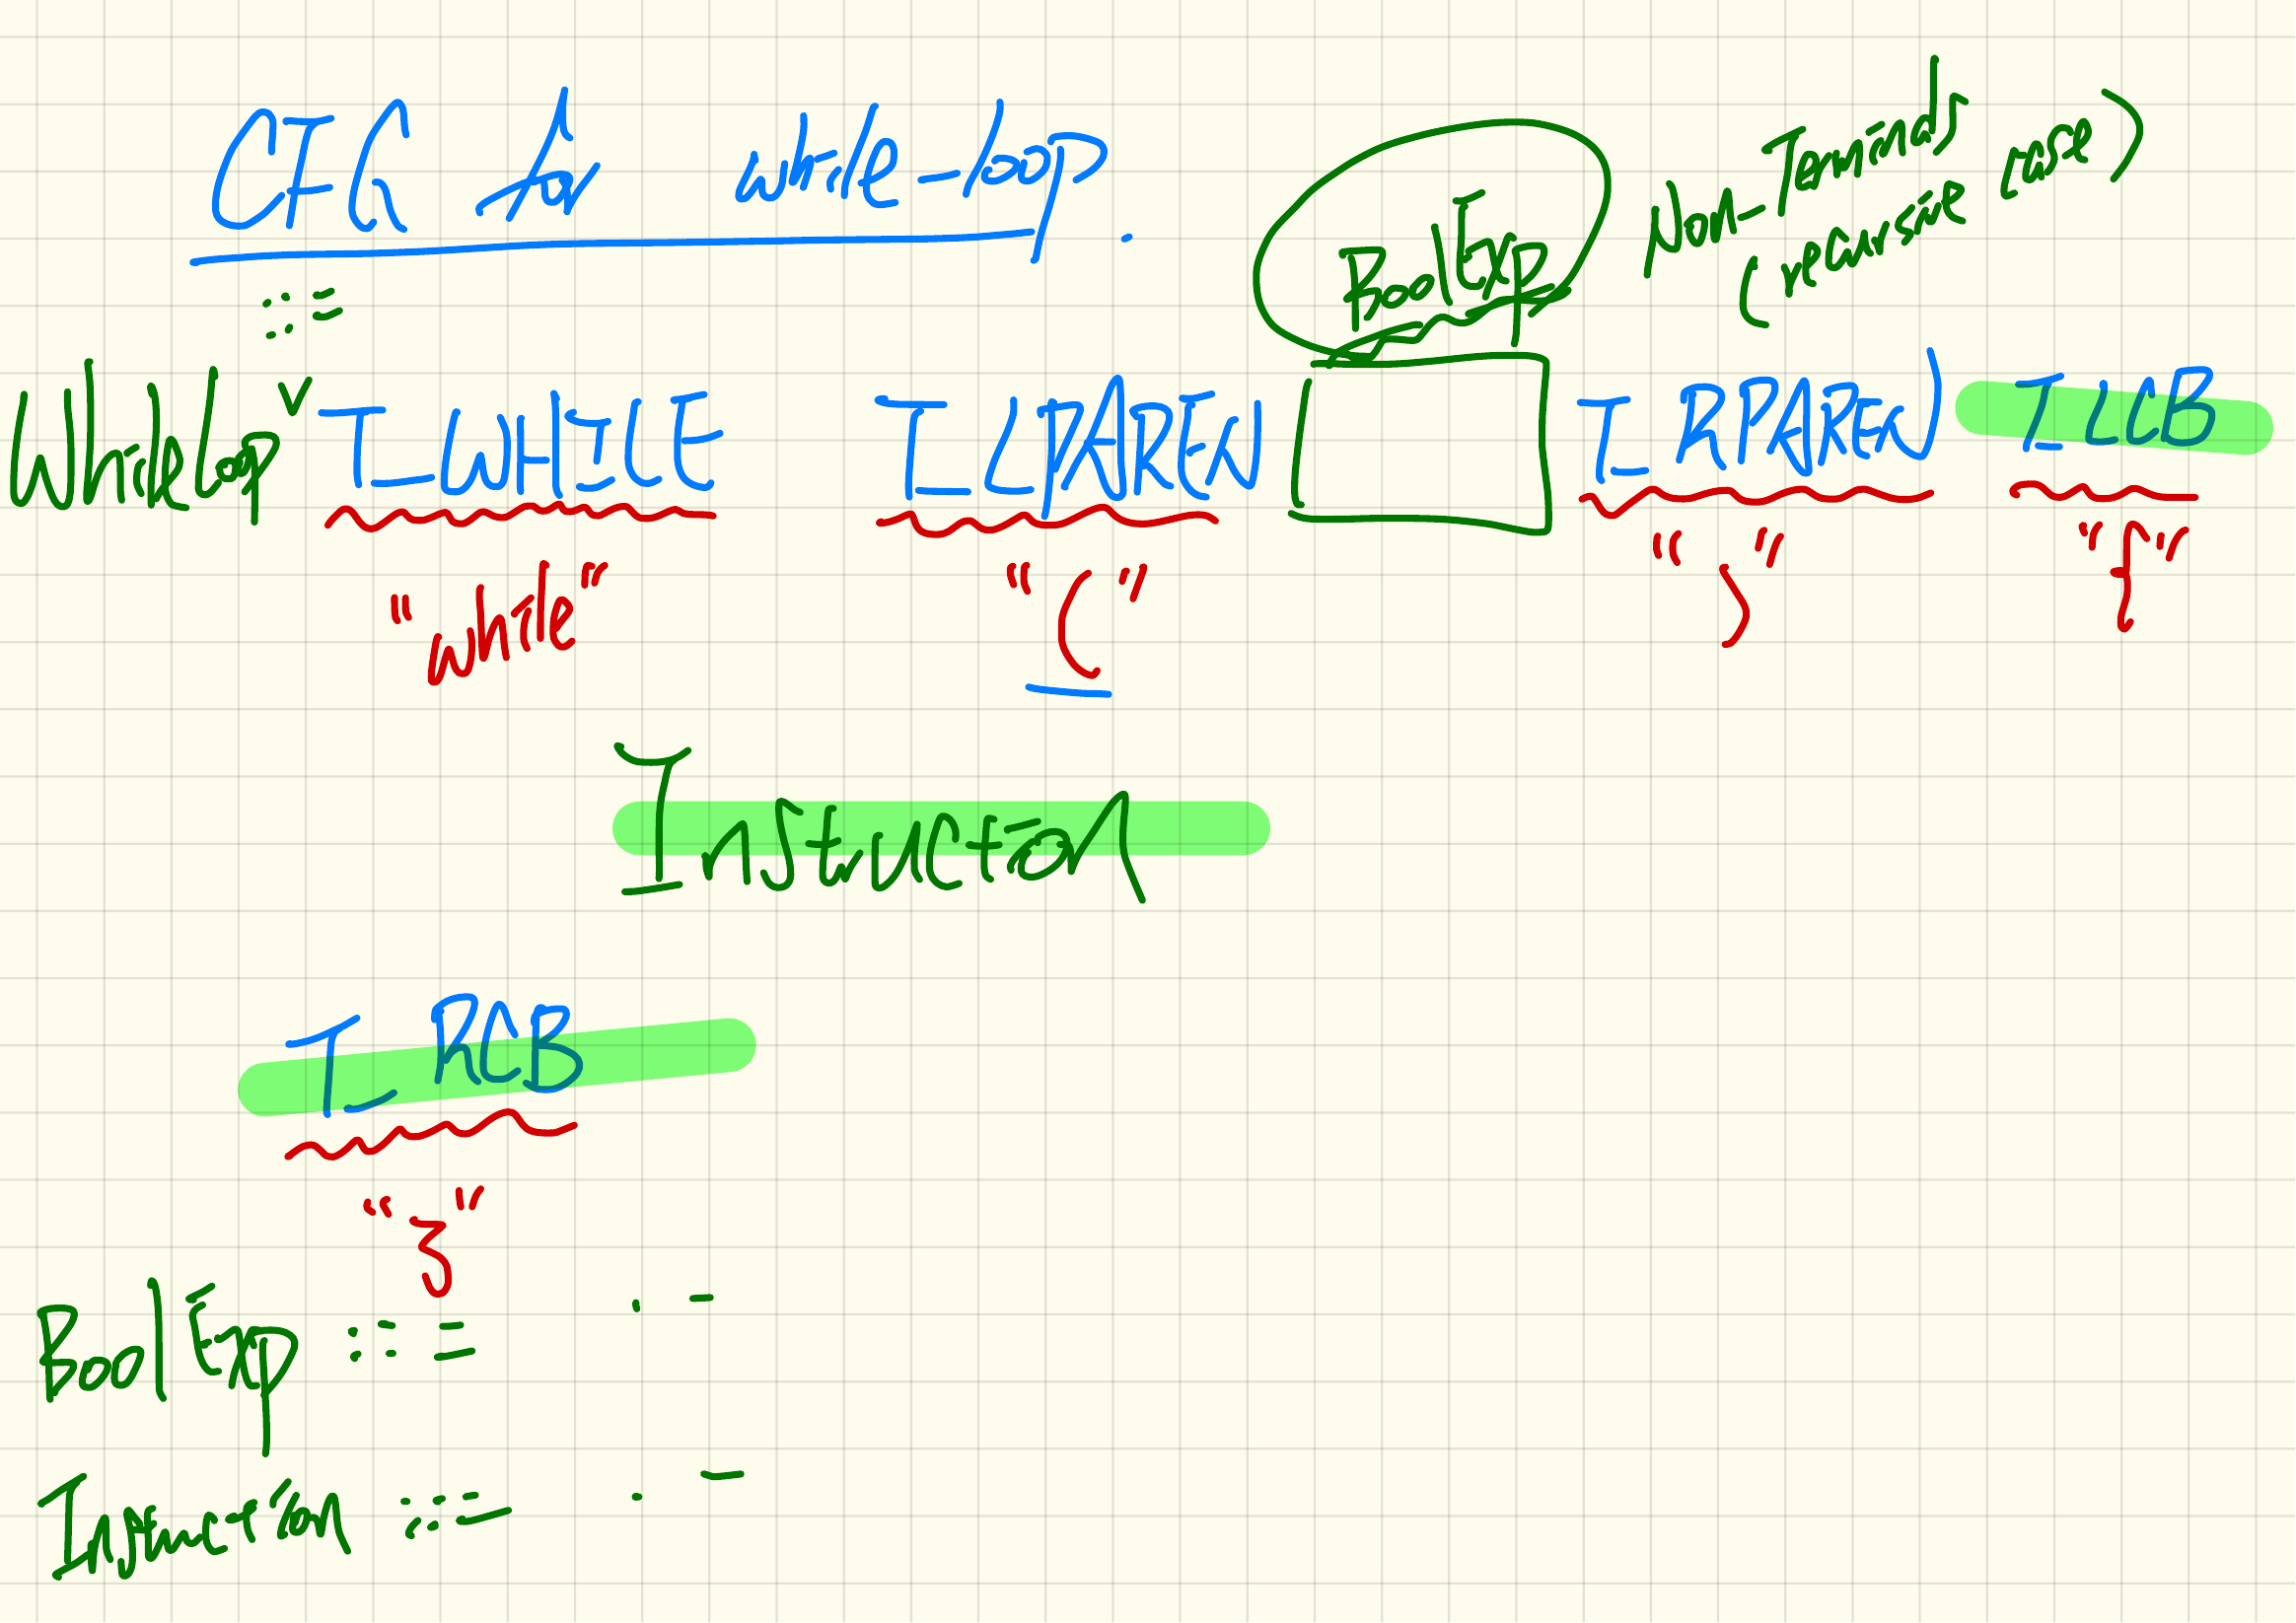 CFG for while-loop.
BoolExp Non-Terminals
(recursive case)
::=
WhileLoop T_WHILE T_LPAREN T_RPAREN T_LCB
"while" "(" ")" "{"
Instruction
T_RCB
"}"
BoolExp ::=
Instruction ::=